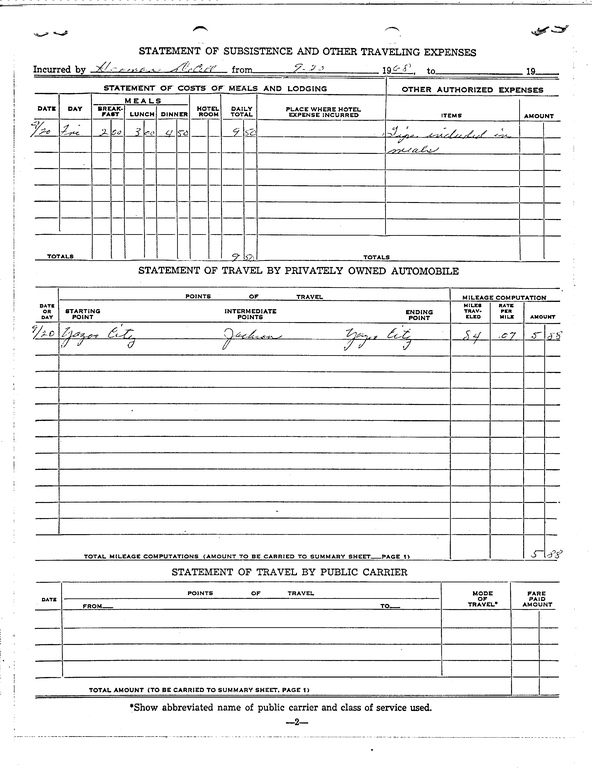 STATEMENT OF SUBSISTENCE AND OTHER TRAVELING EXPENSES
Incurred by Herman from 9-20 1968, to 19
STATEMENT OF COSTS OF MEALS AND LODGING OTHER AUTHORIZED EXPENSES
DATE DAY MEALS BREAK-FAST LUNCH DINNER HOTEL ROOM DAILY TOTAL PLACE WHERE HOTEL EXPENSE INCURRED ITEMS AMOUNT
9/20 Fri 2 00 3 00 4 50 9 50 Tips included in
meals
TOTALS 9 50 TOTALS
STATEMENT OF TRAVEL BY PRIVATELY OWNED AUTOMOBILE
POINTS OF TRAVEL MILEAGE COMPUTATION
DATE OR DAY STARTING POINT INTERMEDIATE POINTS ENDING POINT MILES TRAV-ELED RATE PER MILE AMOUNT
9/20 Yazoo City Jackson Yazoo City 84 .07 5 88
TOTAL MILEAGE COMPUTATIONS (AMOUNT TO BE CARRIED TO SUMMARY SHEET—PAGE 1) 5 88
STATEMENT OF TRAVEL BY PUBLIC CARRIER
DATE POINTS OF TRAVEL MODE OF TRAVEL* FARE PAID AMOUNT
FROM— TO—
TOTAL AMOUNT (TO BE CARRIED TO SUMMARY SHEET, PAGE 1)
*Show abbreviated name of public carrier and class of service used.
—2—